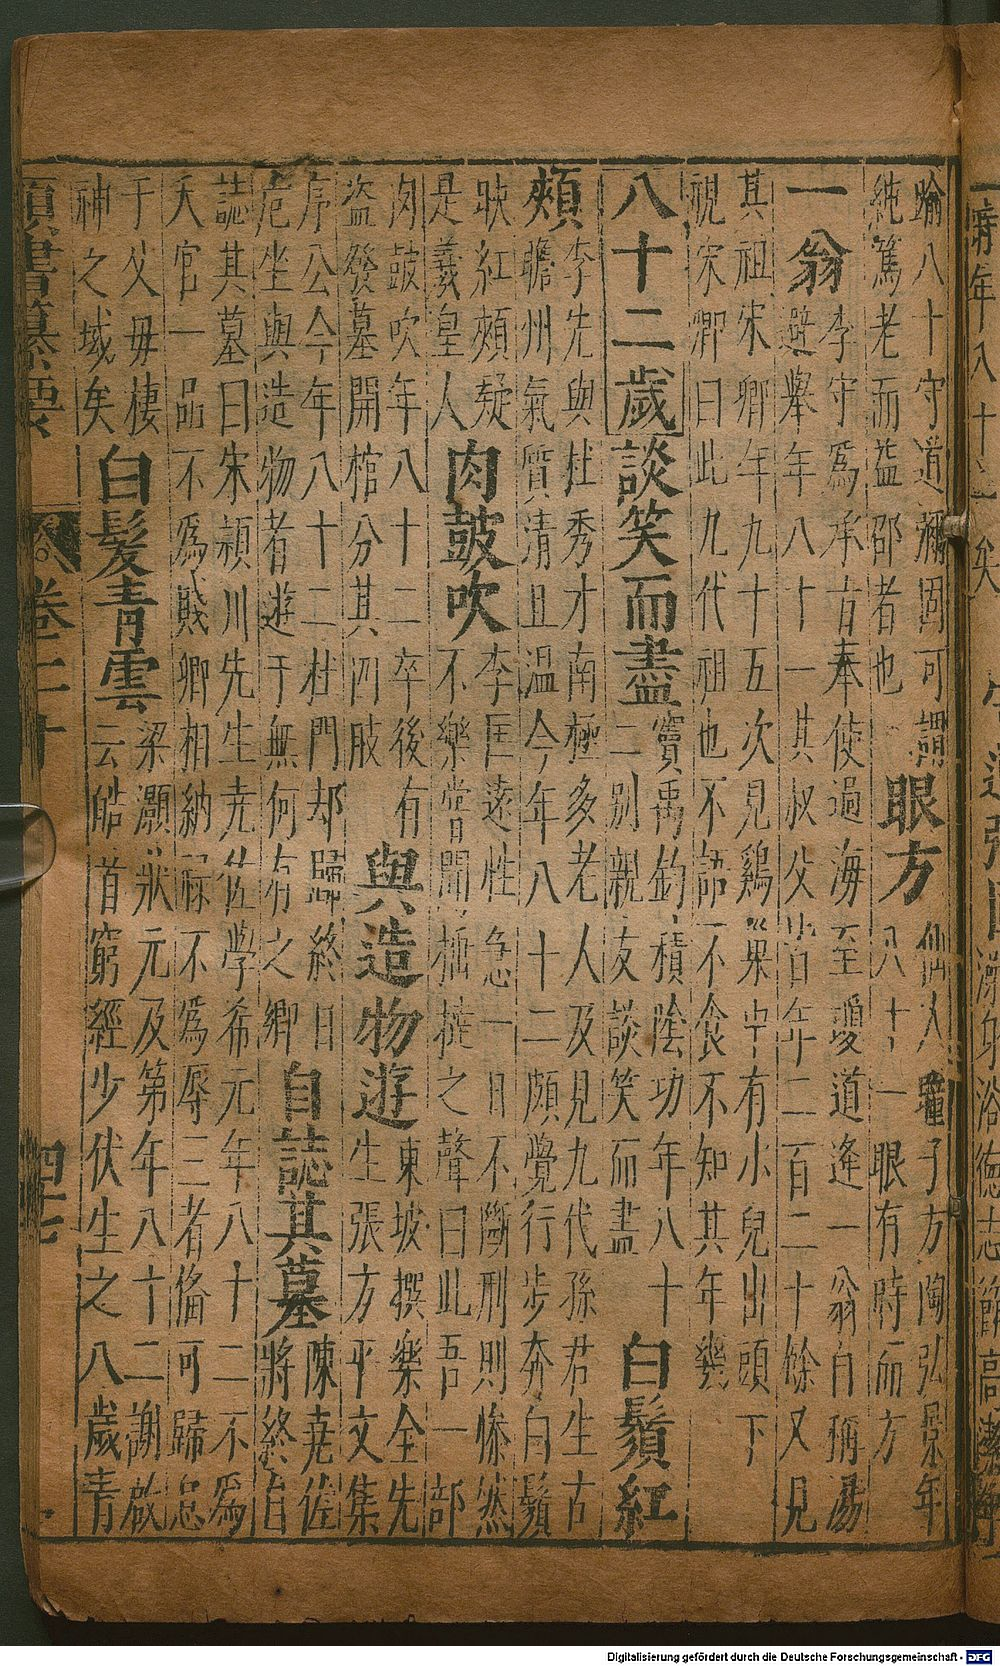 踰八十守道彌固可謂
純篤老而益邵者也
眼方
仙人瞳子方陶弘景年
八十一眼有時而方
一翁
李守爲承旨奉使過海至瓊道逢一翁自稱湯
避舉年八十一其叔父皆年二百二十餘又見
其祖宋卿年九十五次見鷄窠中有小兒出頭下
視宋卿曰此九代祖也不語不食不知其年幾
八十二歲
談笑而盡
竇禹鈞積陰功年八十
二別親友談笑而盡
白鬚紅
頰
李先與杜秀才南極多老人及見九代孫君生古
瞻州氣質清且溫今年八十二頗覺行步奔白鬚
映紅頰疑
是羲皇人
肉鼓吹
李匡遠性急一日不斷刑則慘然
不樂嘗聞捶撻之聲曰此吾一部
肉鼓吹年八十二卒後有
盜發墓開棺分其四肢
與造物遊
東坡撰樂全先
生張方平文集
序公今年八十二杜門却歸終日
危坐與造物者遊于無何有之鄉
自誌其墓
陳尭佐
將終自
誌其墓曰宋潁川先生尭佐學希元年八十二不爲
夭官一品不爲賤卿相納祿不爲辱三者俻可歸息
于父毋棲
神之域矣
白髮青雲
梁灝狀元及第年八十二謝啟
云皓首窮經少伏生之八歲青
類書纂要
卷二十
四十七
Digitalisierung gefördert durch die Deutsche Forschungsgemeinschaft - DFG